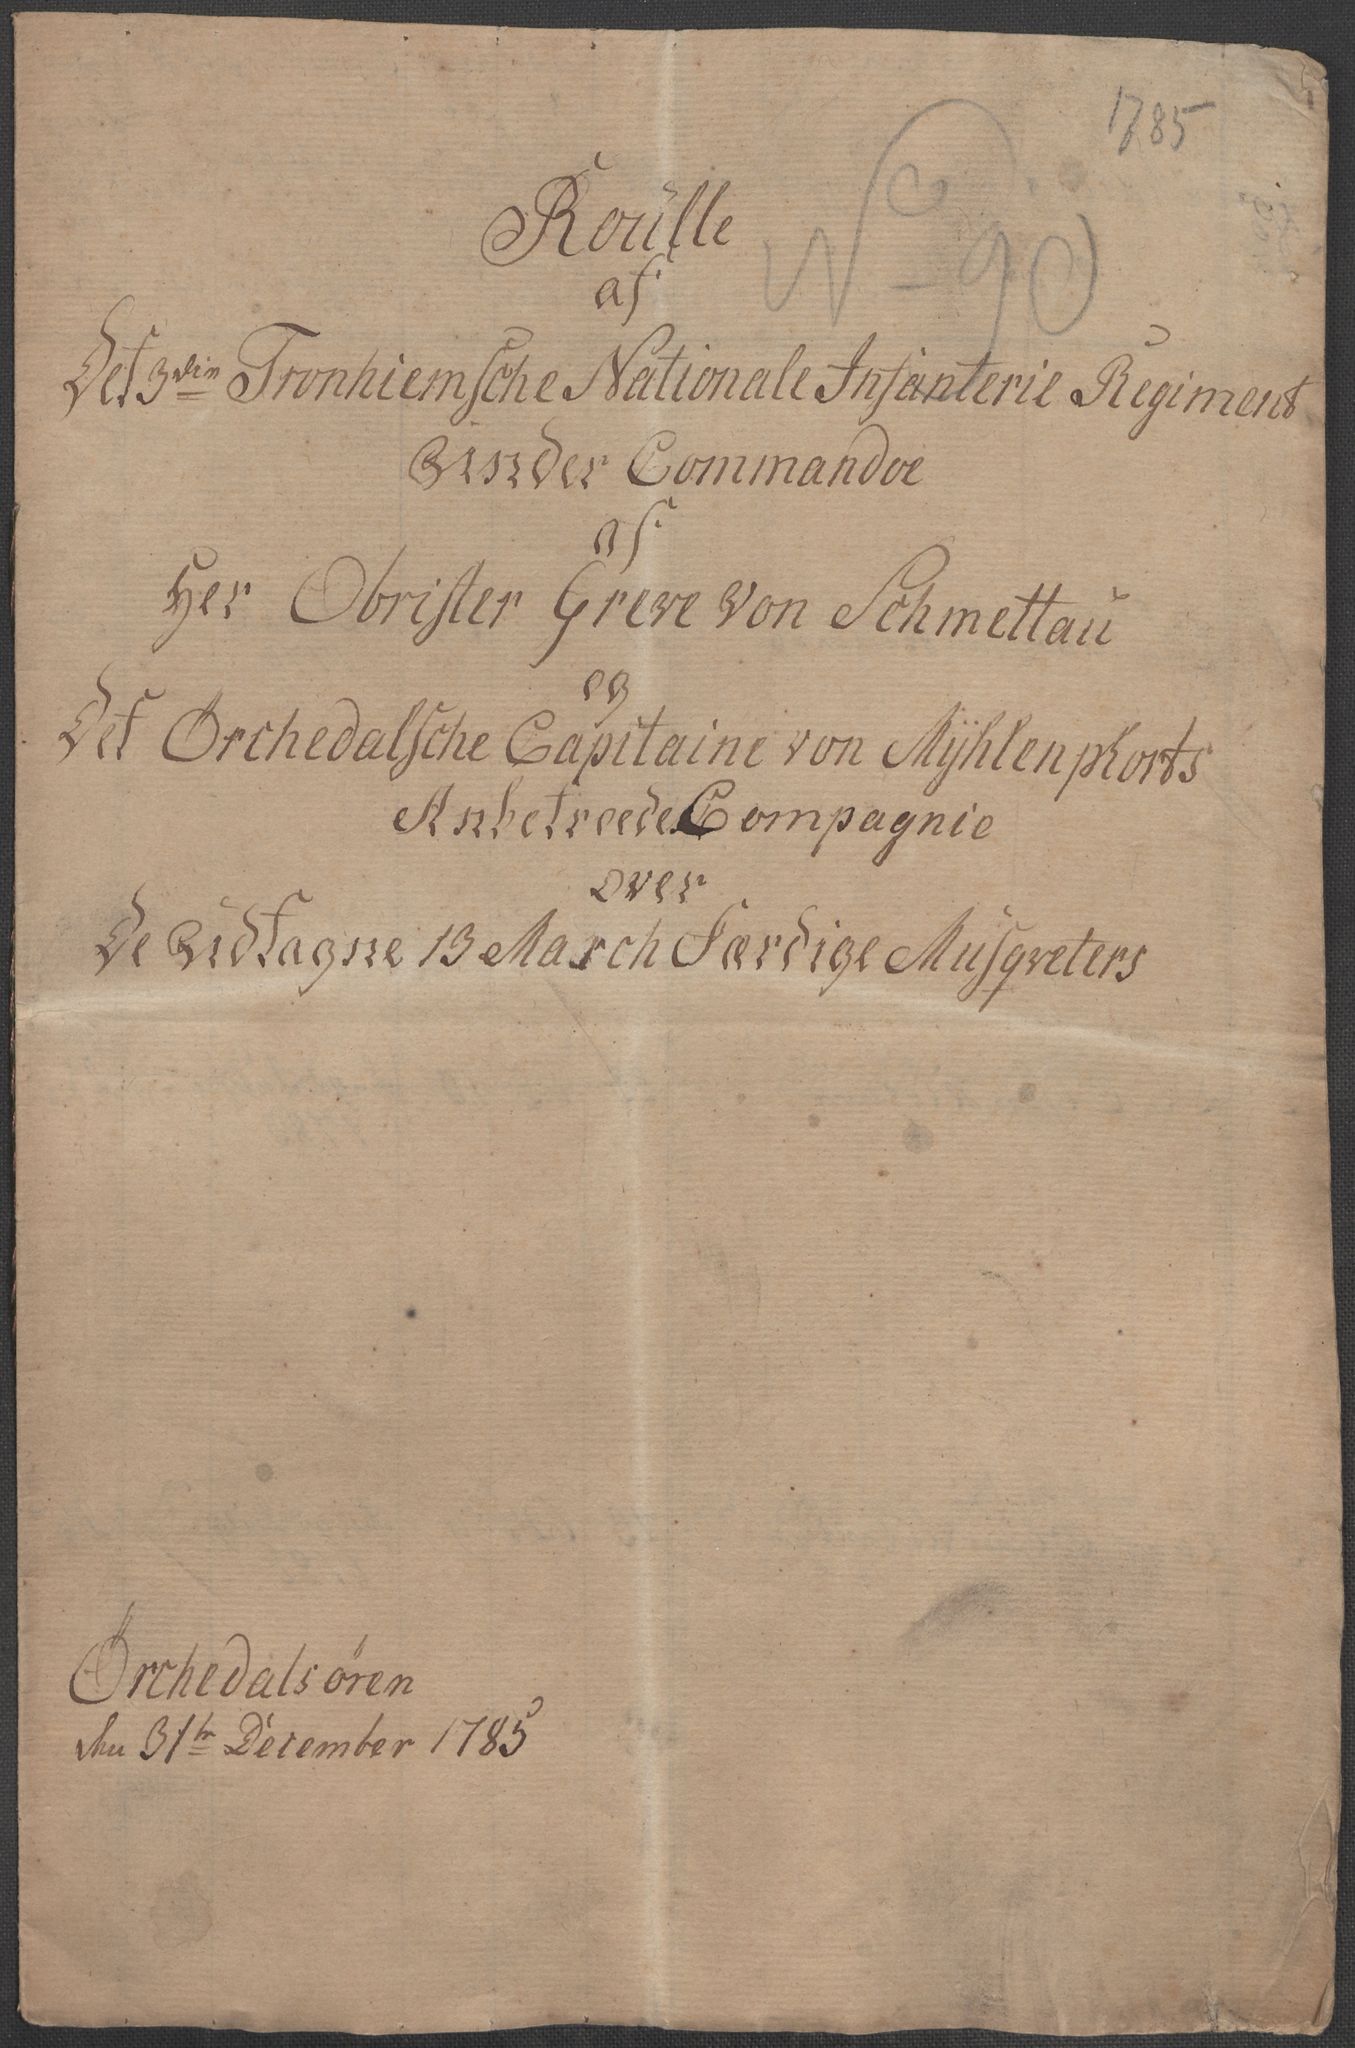 1785
No 90
Roulle
af
Det 3die Tronhiemsche Nationale Infanterie Regiment
Under Commandoe
af
Her Obrister Greve von Schmettau
og
Det Örchedalsche Capitaine von Mÿhlenphorts
Anbetroede Compagnie
over
De Udtagne 13 March Færdige Musqveters
Örchedalsören
den 31te December 1785